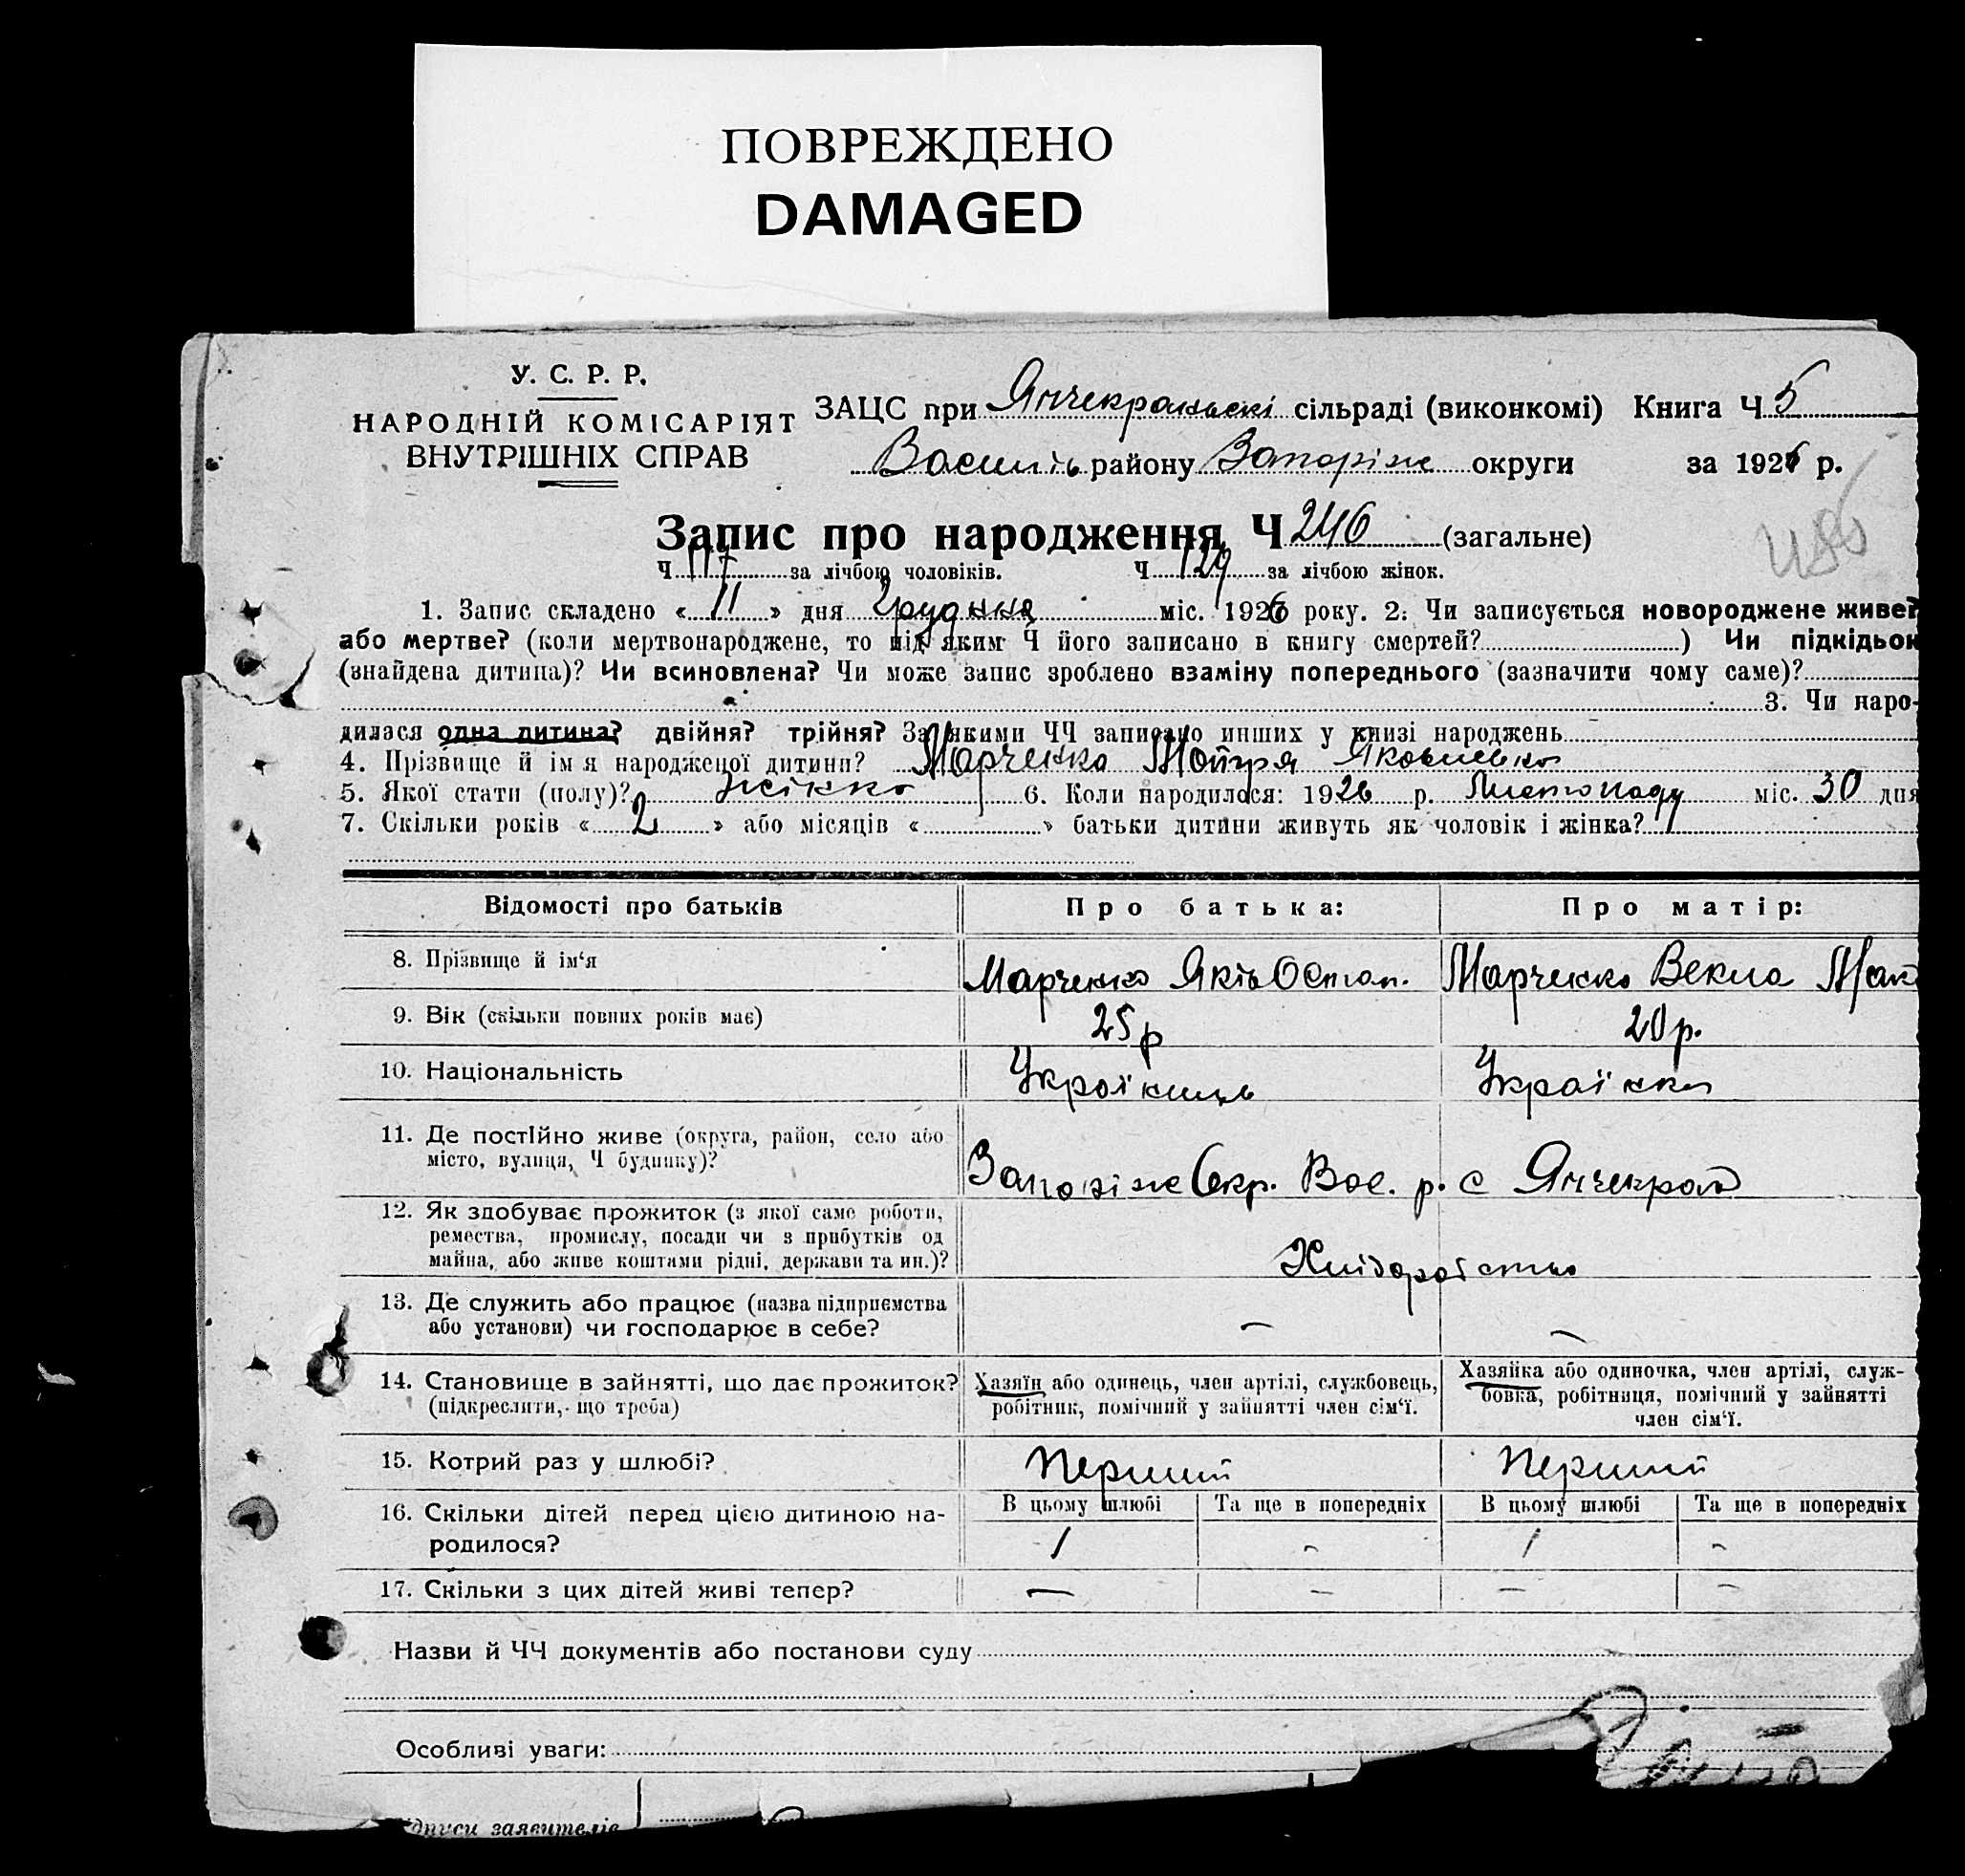 ПОВРЕЖДЕНО
DAMAGED
У. С. Р. Р.
НАРОДНІЙ КОМІСАРІЯТ
ВНУТРІШНІХ СПРАВ
ЗАЦС при Янчекракські сільраді (виконкомі) Книга Ч 5
Василь району Запоріж округи за 1926 р.
Запис про народження Ч 246 (загальне)
Ч 117 за лічбою чоловіків. Ч 129 за лічбою жінок.
1. Запис складено « 11 » дня Грудння міс. 1926 року. 2. Чи записується новороджене живе?
або мертве? (коли мертвонароджене, то під яким Ч його записано в книгу смертей? ) Чи підкідьок
(знайдена дитина)? Чи всиновлена? Чи може запис зроблено взаміну попереднього (зазначити чому саме)?
3. Чи наро-
дилася одна дитина? двійня? трійня? За якими ЧЧ записано инших у книзі народжень
4. Прізвище й імя народженої дитини? Марченко Мотря Яковлевна
5. Якої стати (полу)? жінка 6. Коли народилося: 1926 р. Листопаду міс. 30 дня
7. Скільки років « 2 » або місяців « » батьки дитини живуть як чоловік і жінка?
Відомості про батьків Про батька: Про матір:
8. Прізвище й ім‘я Марченко Яків Остап. Марченко Векла Мак
9. Вік (скільки повних років має) 25р 20р.
10. Національність Українець Українка
11. Де постійно живе (округа, район, село або
місто, вулиця, Ч будинку)? Запоріж Окр. Вас. р. с Янчекрак
12. Як здобуває прожиток (з якої саме роботи,
ремества, промислу, посади чи з прибутків од
майна, або живе коштами рідні, держави та ин.)? Хліборобство
13. Де служить або працює (назва підприємства
або установи) чи господарює в себе? — —
14. Становище в зайнятті, що дає прожиток?
(підкреслити, що треба)
Хазяїн або одинець, член артілі, службовець,
робітник, помічний у зайнятті член сім‘ї.
Хазяйка або одиночка, член артілі, служ-
бовка, робітниця, помічний у зайнятті
член сім‘ї.
15. Котрий раз у шлюбі? Перший Перший
В цьому шлюбі Та ще в попередніх В цьому шлюбі Та ще в попередніх
16. Скільки дітей перед цією дитиною на-
родилося? 1 - 1 -
17. Скільки з цих дітей живі тепер? — — — —
Назви й ЧЧ документів або постанови суду
Особливі уваги:
дписи заявителів